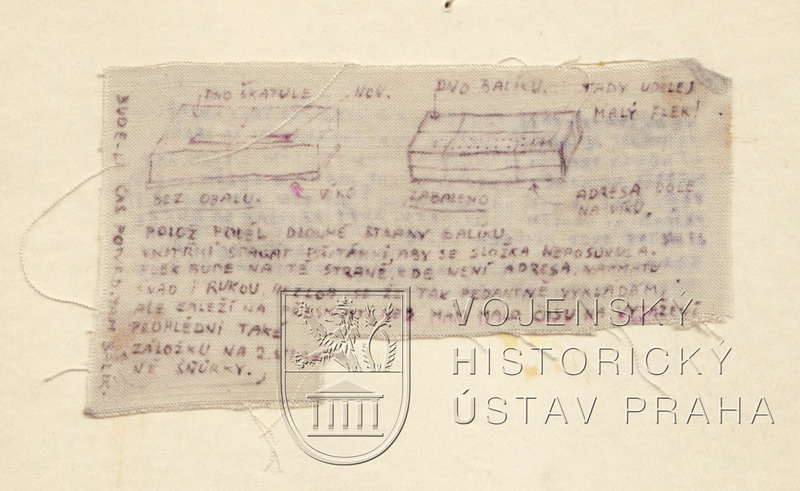 DNO ŠKATULE
NOV.
BEZ OBALU.
VÍKO
DNO BALÍKU.
TADY UDĚLEJ
MALÝ FLEK!
ZABALENO
ADRESA DOLE
NA VÍKU.
POLOŽ PODÉL DLOUHÉ STRANY BALÍKU,
VNITŘNÍ ŠPAGÁT PŘITÁHNI, ABY SE SLOŽKA NEPOSUNULA.
FLEK BUDE NA TÉ STRANĚ, KDE NENÍ ADRESA,
SNAD I RUKOU. ŽE TAK PEDANTNĚ VYKLÁDÁM,
ALE ZÁLEŽÍ NA
PROHLÉDNI TAKÉ
ZÁLOŽKU NA 2.
NĚ ŠŇŮRKY.
BUDE-LI ČAS
VOJENSKÝ
HISTORICKÝ
ÚSTAV PRAHA